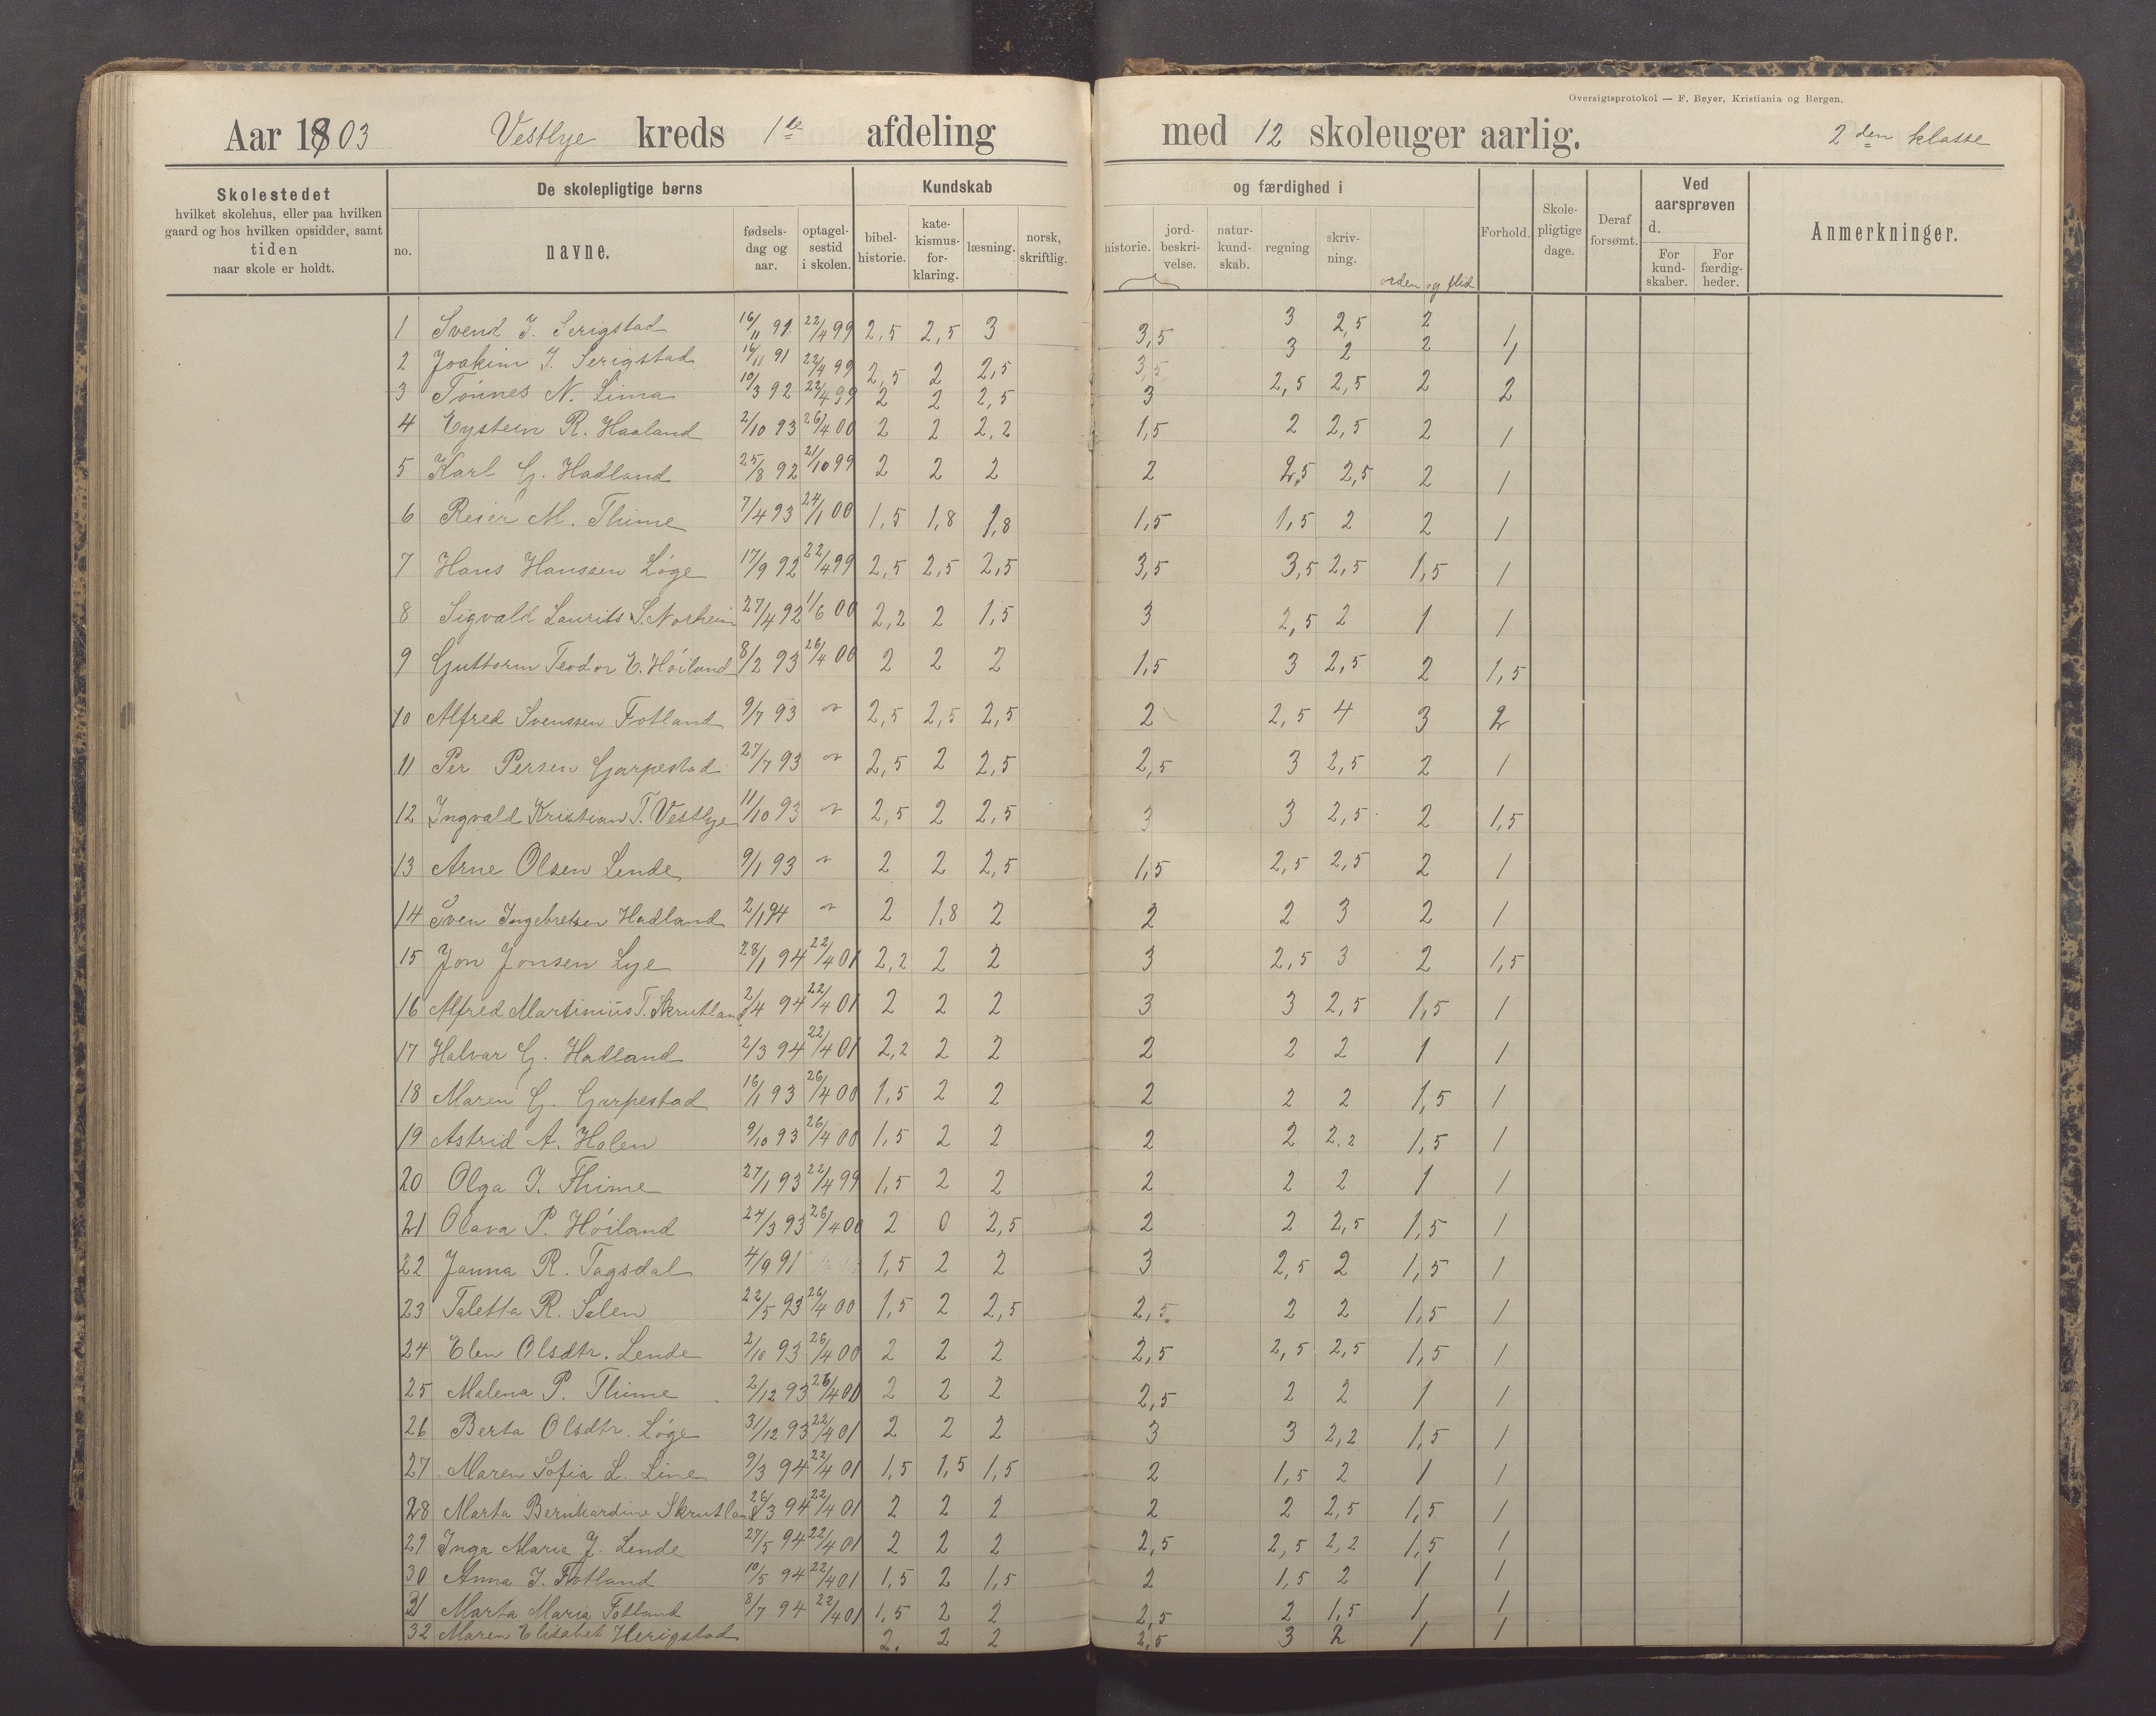 Oversigtsprotokol — F. Beyer, Kristiania og Bergen.
Aar 1903 Vestlye kreds 1ste afdeling med 12 skoleuger aarlig. 2den klasse
Skolestedet hvilket skolehus, eller paa hvilken gaard og hos hvilken opsidder, samt tiden naar skole er holdt.
De skolepligtige børns
no. navne. fødsels-dag og aar. optagel-sestid i skolen.
Kundskab og færdighed i
bibel-historie. kate-kismus-for-klaring. læsning. norsk, skriftlig. historie. jord-beskri-velse. natur-kund-skab. regning skriv-ning. orden og flid
Forhold. Skole-pligtige dage. Deraf forsømt.
Ved aarsprøven d. For kund-skaber. For færdig-heder.
Anmerkninger.
1 Svend J. Serigstad 16/11 91 22/4 99 2,5 2,5 3 3,5 3 2,5 2 1
2 Joakim J. Serigstad 16/11 91 22/4 99 2,5 2 2,5 3,5 3 2 2 1
3 Tønnes N. Lima 10/3 92 22/4 99 2 2 2,5 3 2,5 2,5 2 2
4 Eystein R. Haaland 2/10 93 26/4 00 2 2 2,2 1,5 2 2,5 2 1
5 Karl G. Hadland 25/8 92 21/10 99 2 2 2 2 2,5 2,5 2 1
6 Reier M. Thime 7/4 93 24/1 00 1,5 1,8 1,8 1,5 1,5 2 2 1
7 Hans Hanssen Løge 17/9 92 22/4 99 2,5 2,5 2,5 3,5 3,5 2,5 1,5 1
8 Sigvald Laurits S. Norheim 27/4 92 1/6 00 2,2 2 1,5 3 2,5 2 1 1
9 Guttorm Teodor E. Høiland 8/2 93 26/4 00 2 2 2 1,5 3 2,5 2 1,5
10 Alfred Svenssen Fotland 9/7 93 " 2,5 2,5 2,5 2 2,5 4 3 2
11 Per Persen Garpestad 27/7 93 " 2,5 2 2,5 2,5 3 2,5 2 1
12 Ingvald Kristian T. Vestlye 11/10 93 " 2,5 2 2,5 3 3 2,5 2 1,5
13 Arne Olsen Lende 9/1 93 " 2 2 2,5 1,5 2,5 2,5 2 1
14 Sven Ingebretsen Hadland 2/1 94 " 2 1,8 2 2 2 3 2 1
15 Jon Jonsen Lye 28/1 94 22/4 01 2,2 2 2 3 2,5 3 2 1,5
16 Alfred Martinius T. Skrutland 2/4 94 22/4 01 2 2 2 3 3 2,5 1,5 1
17 Halvar G. Hadland 2/3 94 22/4 01 2,2 2 2 2 2 2 1 1
18 Maren G. Garpestad 16/1 93 26/4 00 1,5 2 2 2 2 2 1,5 1
19 Astrid A. Holen 9/10 93 26/4 00 1,5 2 2 2 2 2,2 1,5 1
20 Olga J. Thime 27/1 93 22/4 99 1,5 2 2 2 2 2 1 1
21 Olava P. Høiland 24/3 93 26/4 00 2 0 2,5 2 2 2,5 1,5 1
22 Janna R. Tagsdal 4/9 91 1,5 2 2 3 2,5 2 1,5 1
23 Taletta R. Salen 22/5 93 26/4 00 1,5 2 2,5 2,5 2 2 1,5 1
24 Elen Olsdtr. Lende 2/10 93 26/4 00 2 2 2 2,5 2,5 2,5 1,5 1
25 Malena P. Thime 2/12 93 26/4 00 2 2 2 2,5 2 2 1 1
26 Berta Olsdtr. Løge 31/12 93 22/4 01 2 2 2 3 3 2,2 1,5 1
27 Maren Sofia L. Line 9/3 94 22/4 01 1,5 1,5 1,5 2 1,5 2 1 1
28 Marta Bernhardine Skrutland 26/3 94 22/4 01 2 2 2 2 2 2,5 1,5 1
29 Inga Maria J. Lende 27/5 94 22/4 01 2 2 2 2,5 2,5 2,2 1,5 1
30 Anna J. Fotland 10/5 94 22/4 01 1,5 2 1,5 2 1,5 2 1 1
31 Marta Maria Fotland 8/7 94 22/4 01 1,5 2 2 2,5 2 1,5 1 1
32 Maren Elisabet Herigstad 2. 2 2 2,5 3 2 1 1